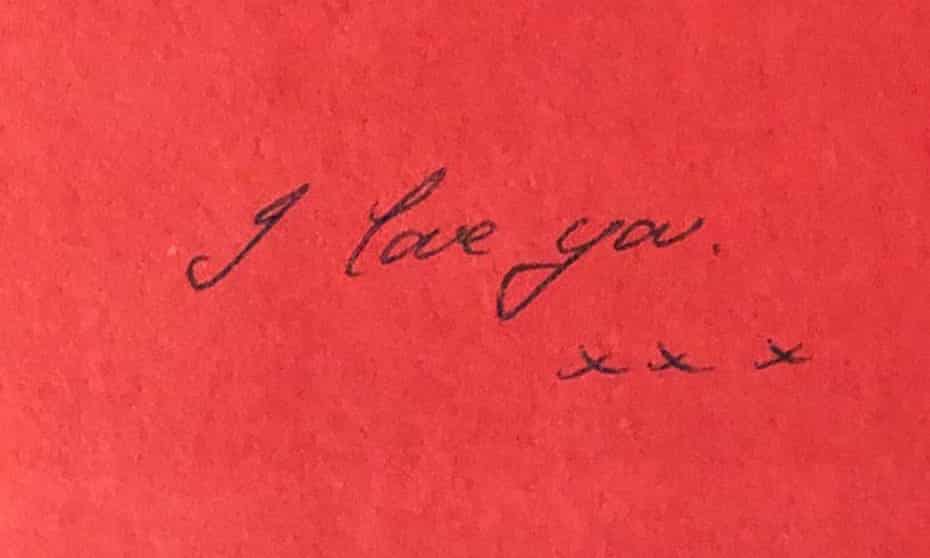 I love you.
x x x